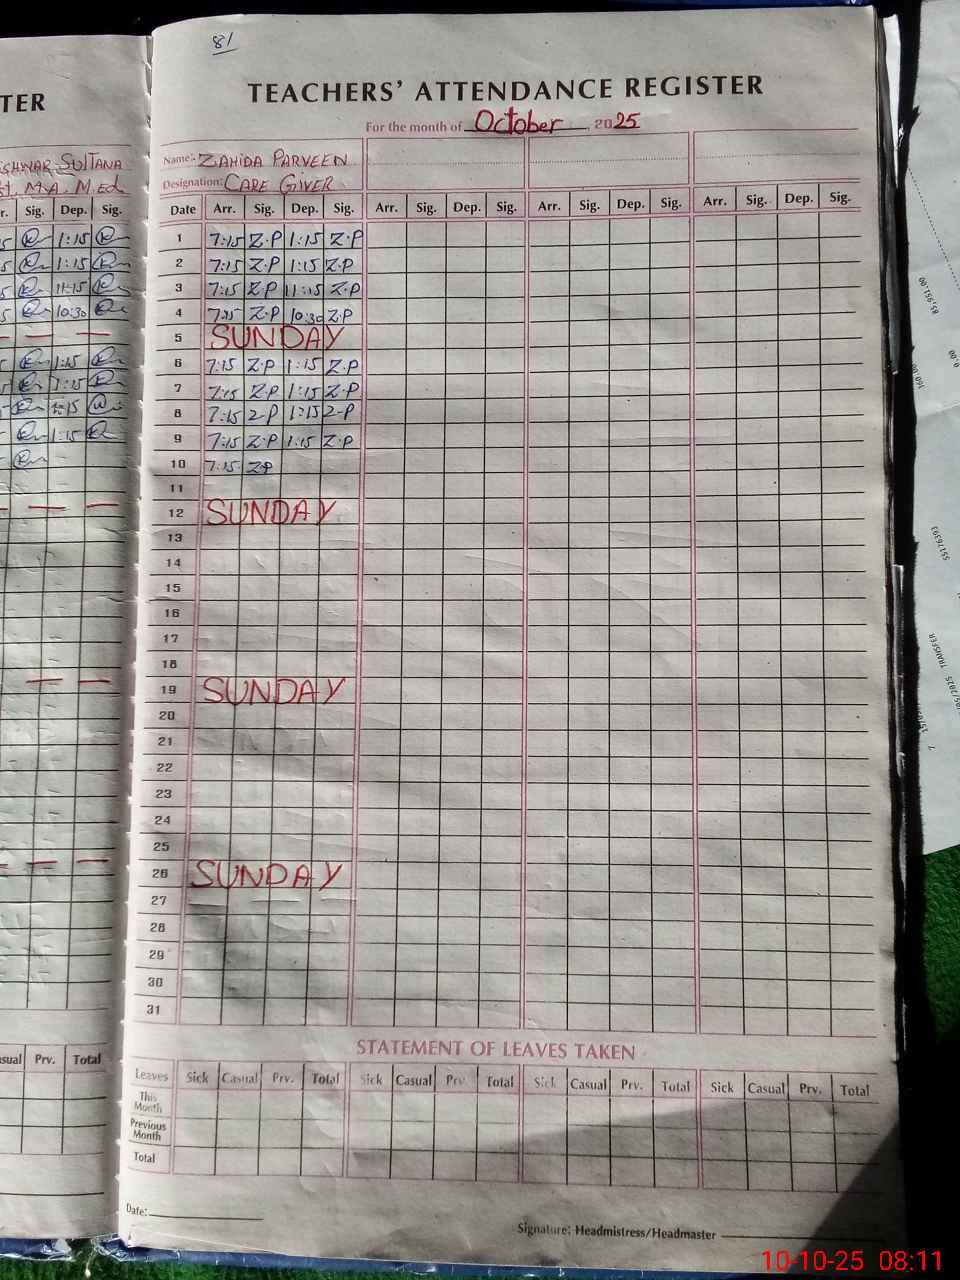 81
TER
TEACHERS' ATTENDANCE REGISTER
For the month of October, 2025
SULTANA
M.A. M.Ed
Name:- ZAHIDA PARVEEN
Designation: CARE GIVER
Sig. Dep. Sig.
Date Arr. Sig. Dep. Sig. Arr. Sig. Dep. Sig. Arr. Sig. Dep. Sig. Arr. Sig. Dep. Sig.
1:15
1 7:15 Z.P 1:15 Z.P
1:15
2 7:15 Z.P 1:15 Z.P
11:15
3 7:15 Z.P 11:15 Z.P
10:30
4 7:15 Z.P 10:30 Z.P
5 SUNDAY
1:15
6 7:15 Z.P 1:15 Z.P
1:15
7 7:15 Z.P 1:15 Z.P
1:15
8 7:15 Z-P 1:15 Z-P
1:15
9 7:15 Z.P 1:15 Z.P
10 7:15 ZP
11
12 SUNDAY
13
14
15
16
17
18
19 SUNDAY
20
21
22
23
24
25
26 SUNDAY
27
28
29
30
31
STATEMENT OF LEAVES TAKEN
Prv. Total
Leaves Sick Casual Prv. Total Sick Casual Prv Total Sick Casual Prv. Total Sick Casual Prv. Total
This Month
Previous Month
Total
Date:
Signature: Headmistress/Headmaster
85,951.00
0.00
160.00
55176393
TRANSFER
10-10-25 08:11